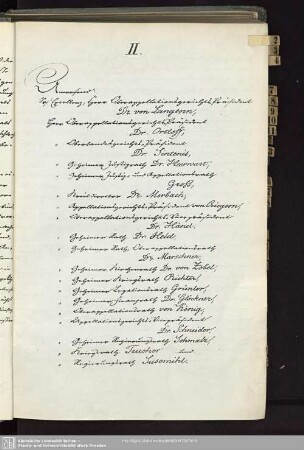 II.
Anwesend:
Se. Excellenz, Herr Oberappellationsgerichts-Präsident
Dr. von Langenn,
Herr Oberappellationsgerichts-Präsident
Dr. Ortloff,
" Oberlandesgerichts-Präsident
Dr. Sintenis,
" Geheimer Justizrath Dr. Hänel,
" Geheimer Justiz- und Appellationsrath
Groß,
" Dr. Merbach,
" Appellationsgerichts-Präsident von
" Oberappellationsgerichts-Vicepräsident
Dr.
" Geheimer Rath Dr. Held,
" Geheimer Rath, Oberappellationsrath
Dr. Marschner,
" Geheimer Kirchenrath Dr. von Zobel,
" Geheimer Kriegsrath Richter,
" Geheimer Legationsrath Grünler,
" Geheimer Finanzrath Dr. Glöckner,
" Oberappellationsrath von König,
" Appellationsgerichts-Vicepräsident
Dr. Schneider,
" Geheimer Regierungsrath Schmalz,
" Kriegsrath Teucher und
" Regierungsrath Susemihl.